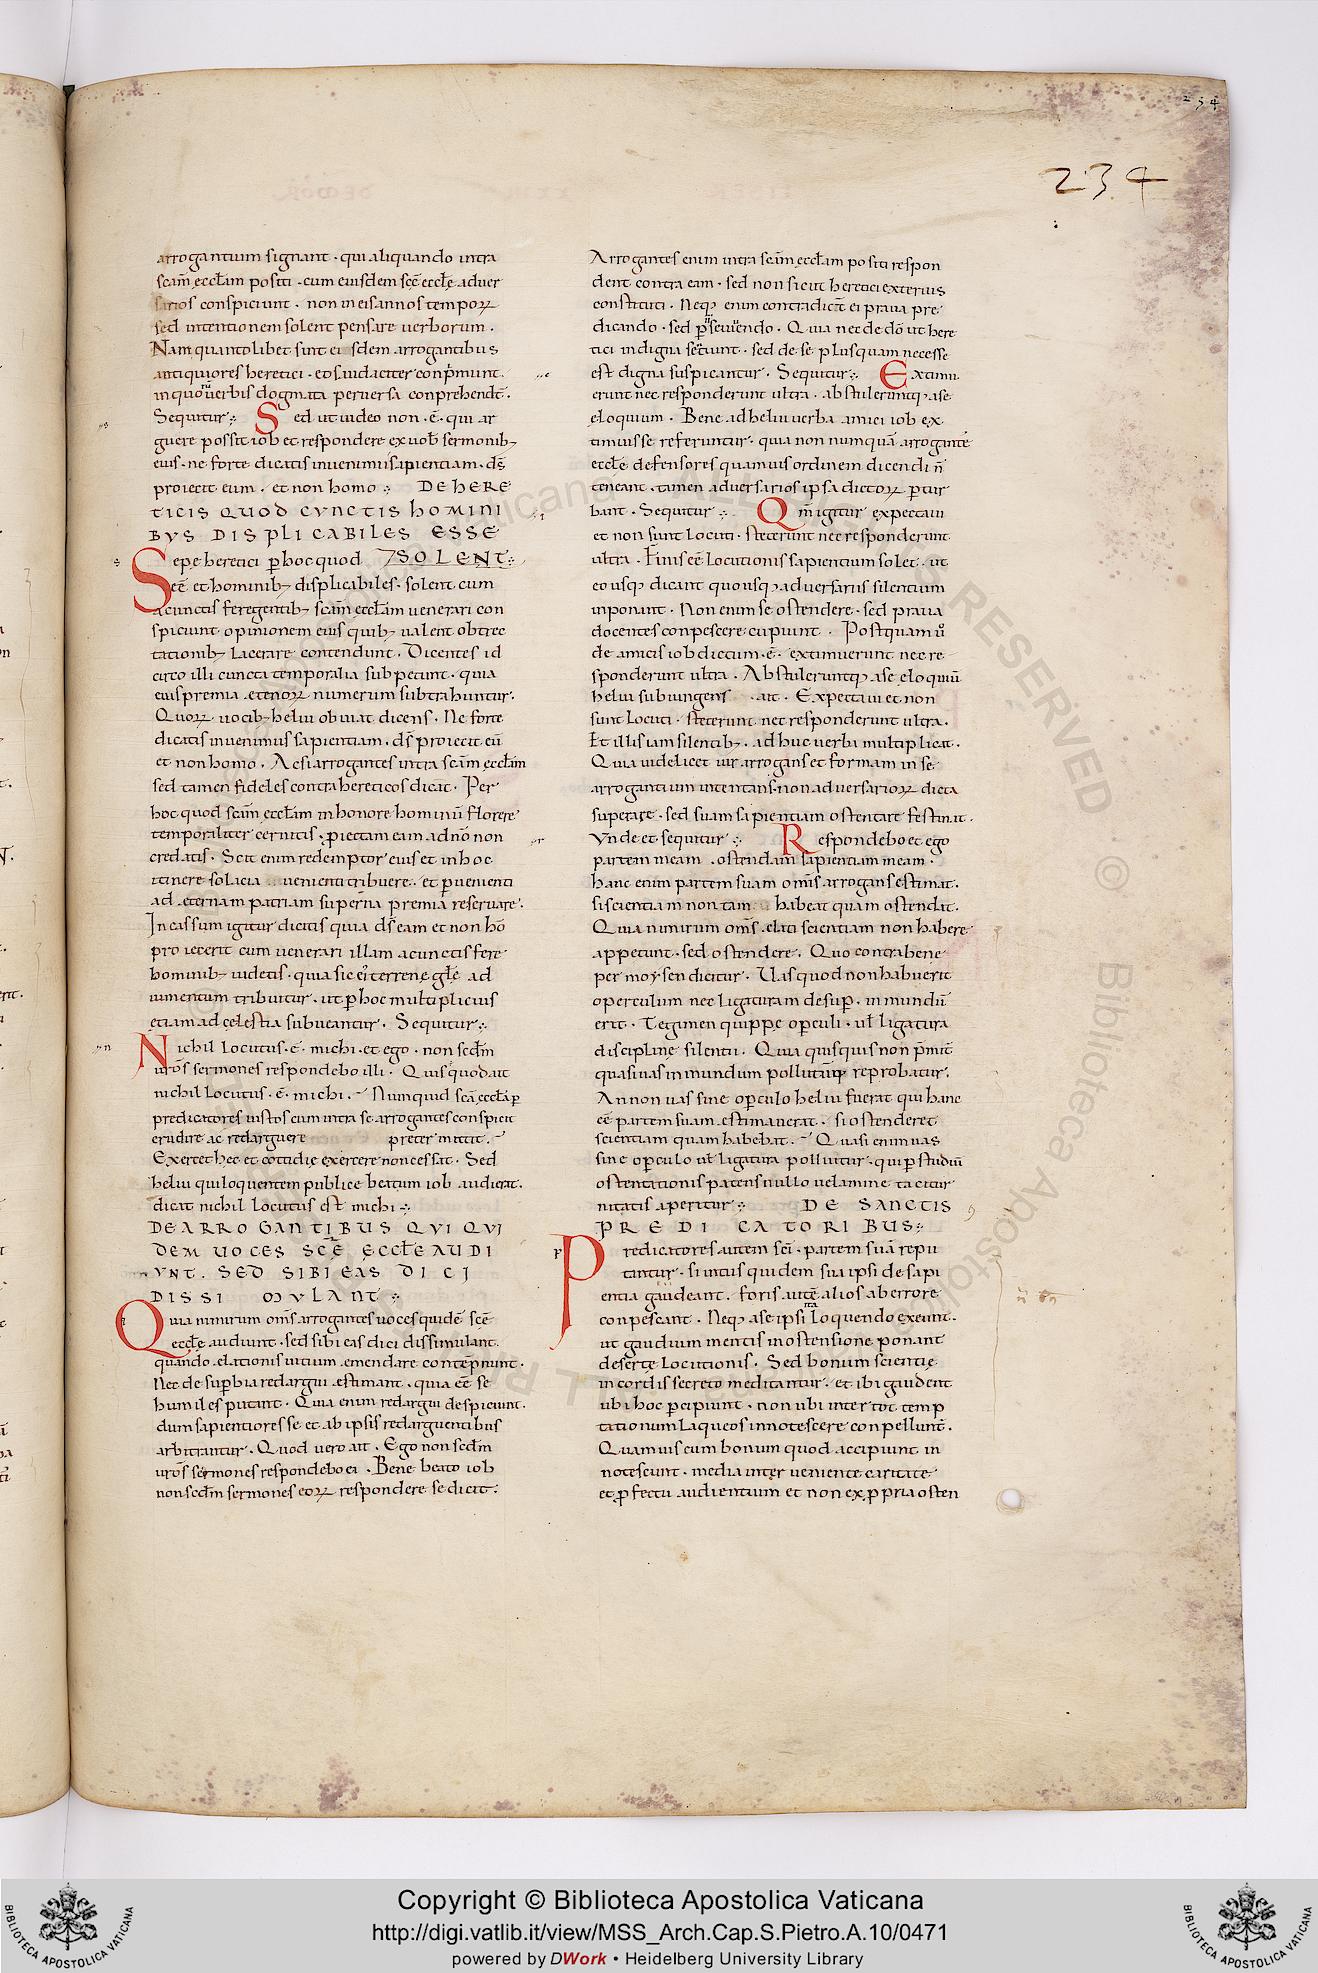 234
234
arrogantium signant · qui aliquando intra
scam ęccłam positi · cum eiusdem scę eccłę aduer
sarios conspiciunt · non in eis annos tempoꝝ
sed intentionem solent pensare uerborum .
Nam quantolibet sint eisdem arrogantibus
antiquiores heretici · eos audacter conp̃munt.
in quoꝝ uerbis dogmata peruersa conprehendt̃ .
Sequitur Sed ut uideo non · ē · qui ar
guere possit iob et respondere ex uob̄ sermonibꝫ
eius · ne forte dicatis inuenimus sapientiam · dš
proiecit eum · et non homo DE HERE
TICIS QUOD CVNCTIS HOMINI
BVS DISPLICABILES ESSE
Sepe heretici ꝑ hoc quod SOLENT
eēē et hominibꝫ displicabiles · solent cum
a cunctis fere gentibꝫ scam̄ eccłam uenerari con
spiciunt opinionem eius quibꝫ ualent obtrec
tationibꝫ lacerare contendunt . Dicentes id
circo illi cuncta temporalia subpetunt · quia
eius premia ęternoꝝ numerum subtrahuntur .
Quoꝝ uocibꝫ heliu obuiat dicens . Ne forte
dicatis inuenimus sapientiam · dš proiecit eū
et non homo . Ac si arrogantes intra scam̄ ęccłam
sed tamen fideles contra hereticos dicat̄ . Per
hoc quod scam̄ ęccłam in honore hominū florere
temporaliter cernitis · piectam eam a dn̄o non
credatis . Scit enim redemptor eius et in hoc
itinere solacia uenienti tribuere · et ꝑuenienti
ad ęternam patriam superna premia reseruare .
In cassum igitur dicitis quia dš eam et non hō
proiecerit cum uenerari illam a cunctis fere
hominibꝫ uidetis · quia sic ei terrenę głę ad
iumentum tribuitur · ut ꝑ hoc multiplicius
etiam ad cęlestia subueantur . Sequitur
Nichil locutus · ē · michi · et ego · non scđm
uros̄ sermones respondebo illi . Quis quod ait
nichil locutus · ē · michi . Nunquid sca ęccła ꝑ
predicatores iustos cum intra se arrogantes conspicit
erudire ac redarguere preter mittit .
Exercet hec et cottidie exercere non cessat . Sed
heliu qui loquentem publice beatum iob audierat .
dicat nichil locutus est michi
DE ARROGANTIBUS QVI QVI
DEM UOCES SCE ECCŁE AUDI
VNT . SED SIBI EAS DICI
DISSIMVLANT
Quia nimirum om̄s arrogantes uoces quidē scę
eccłę audiunt · sed sibi eas dici dissimulant .
quando elationis uitium emendare contēpnunt .
Nec de suꝑbia redargui ęstimant · quia eē se
humiles putant . Quia enim redargui despiciunt .
dum sapientiores se et ab ipsis redarguentibus
arbitrantur . Quod uero ait . Ego non scđm
uros̄ sermones respondebo ei . Bene beato iob
non scđm sermones eoꝝ respondere se dicit .
Arrogantes enim intra scam̄ ęccłam positi respon
dent contra eam · sed non sicut heretici exterius
constituti . Neqꝫ enim contradicūt ei praua pre
dicando · sed ꝑseuerendo . Quia nec de dō ut here
tici indigna sentiunt · sed de se plusquam necesse
est digna suspicantur . Sequitur Extimu
erunt nec responderunt ultra · abstuleruntqꝫ a se
eloquium . Bene ad heliu uerba amici iob ex
timuisse referuntur · quia non numquā arrogantē
eccłę defensores quamuis ordinem dicendi n̄
teneant · tamen aduersarios ipsa dictoꝝ ꝑtur
bant . Sequitur Qm̄ igitur expectaui
et non sunt locuti · steterunt nec responderunt
ultra . Finis eē locutionis sapientium solet · ut
eo usqꝫ dicant quousqꝫ aduersariis silentium
inponant . Non enim se ostendere · sed praua
docentes conpescere cupiunt . Postquam ū
de amicis iob dictum · ē · extimuerunt nec re
sponderunt ultra . Abstuleruntqꝫ a se eloquiū
heliu subiungens · ait . Expectaui et non
sunt locuti · steterunt nec responderunt ultra .
Et illis iam silentibꝫ · adhuc uerba multiplicat .
Quia uidelicet uir arrogans et formam in se
arrogantium intentans · non aduersarioꝝ dicta
superare · sed suam sapientiam ostentare festinat .
Vnde et sequitur Respondebo et ego
partem meam · ostendam sapientiam meam .
hanc enim partem suam om̄s arrogans estimat .
si scientiam non tam habeat quam ostendat .
Quia nimirum om̄s elati scientiam non habere
appetunt · sed ostendere . Quo contra bene
per moysen dicitur . Uas quod non habuerit
operculum nec ligaturam desuꝑ · inmundū
erit . Tegimen quippe oꝑculi · uł ligatura
disciplinę silentii . Quia quisquis non p̄mit̄
quasi uas inmundum pollutumqꝫ reprobatur .
An non uas sine oꝑculo heliu fuerat qui hanc
eē partem suam ęstimauerat · si ostenderet
scientiam quam habebat . Quasi enim uas
sine oꝑculo uł ligatura polluitur · qui ꝑ studiū
ostentationis patens nullo uelamine taciтur
nitatis aperitur DE SANCTIS
PREDICATORIBUS
Predicatores autem sci̅ · partem suā repu
tantur · si intus quidem sua ipsi de sapi
entia gaudeant . foris autē alios ab errore
conpescant . Neqꝫ a se ipsi loquendo exeunt .
ut gaudium mentis in ostensione ponant
desertę locutionis . Sed bonum scientię
in cordis secreto meditantur · et ibi gaudent
ubi hoc ꝑcipiunt · non ubi inter tot temp
tationum laqueos innotescere conpellunt̄ .
Quamuis cum bonum quod accipiunt in
notescunt · media inter ueniente caritate
et ꝓfectu audientium et non ex ꝓpria osten
Copyright © Biblioteca Apostolica Vaticana
http://digi.vatlib.it/view/MSS_Arch.Cap.S.Pietro.A.10/0471
powered by DWork • Heidelberg University Library